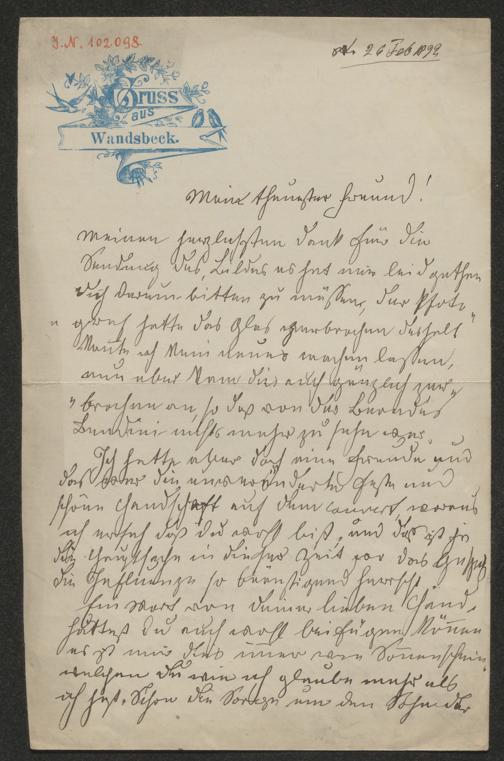 J.N. 102098
26 Feb 1892
Gruss
aus
Wandsbeck.
Mein theuerster Freund!
Meinen herzlichsten Dank für die
Sendung des Bildes es hat mir leid gethan
dich darum bitten zu müssen, der Photo-
graf hatte das Glas zerbrochen deshalb
konte ich kein neues machen lassen,
nun aber kam die auch gänzlich zer-
brochen an, so das von das
nichts mehr zu sehn war.
Ich hatte aber doch eine Freude und
das war die unveränderte feste und
schöne Handschrift auf dem Couvert, woraus
ich ersah daß du wohl bist, und das ist ja
die Hauptsache in dieser Zeit wo das
die Influenza so beängstigend herrscht
Ein Wort von deiner lieben Hand,
hättest du auch wohl beifügen können
es ist mir dies immer wie Sonnenschein
welchen du wie ich glaube mehr als
ich hast. Schon die Sorge um den